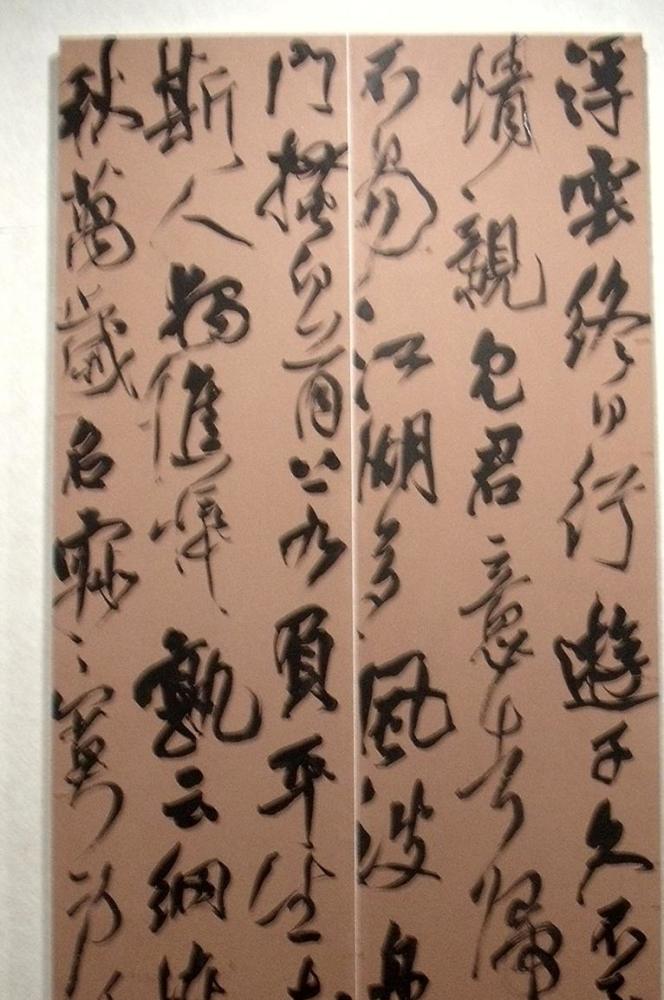 浮雲終日行遊子久不
情親見君意告歸
不易江湖多風波舟
門搔白首若負平生志
斯人獨憔悴孰云網恢
秋萬歲名寂寞身